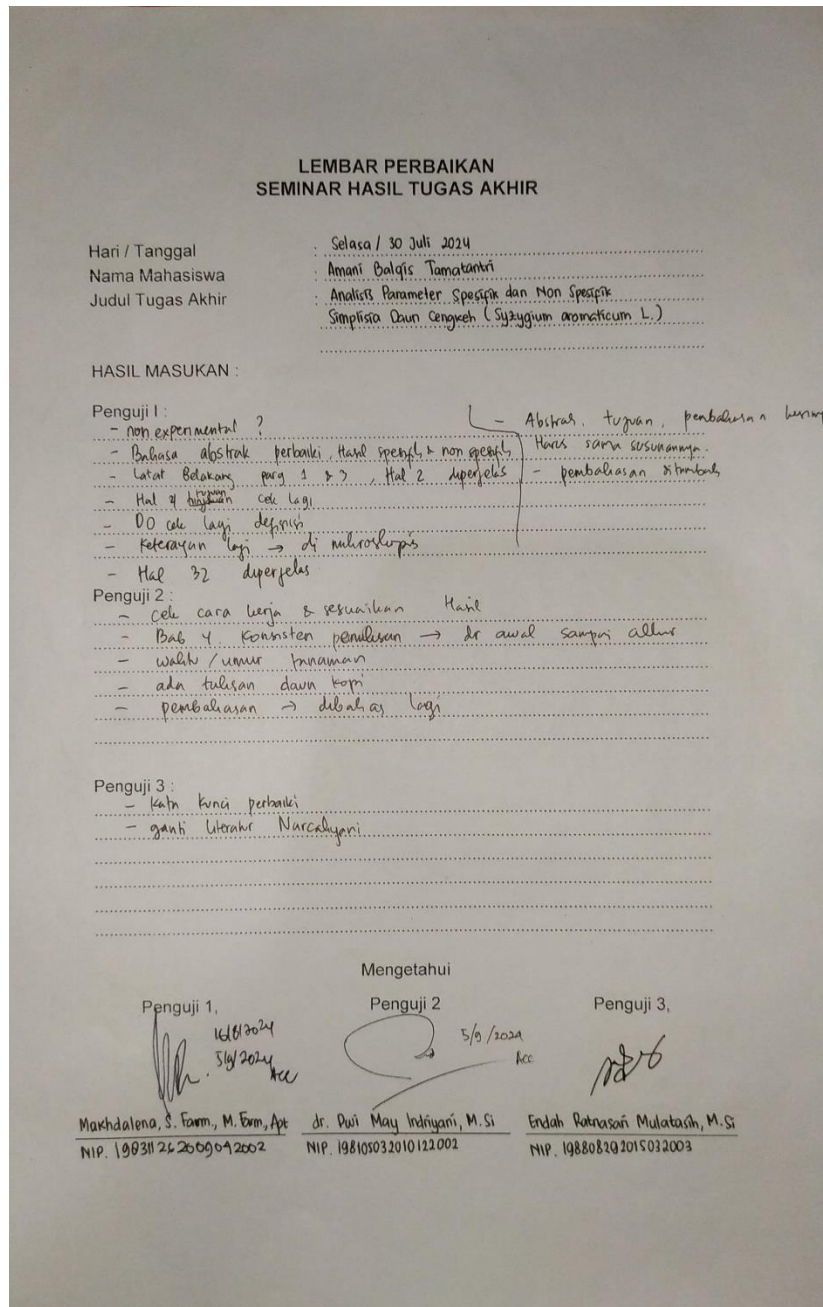 LEMBAR PERBAIKAN
SEMINAR HASIL TUGAS AKHIR
Hari / Tanggal : Selasa / 30 Juli 2024
Nama Mahasiswa : Amani Balqis Tamatantri
Judul Tugas Akhir : Analisis Parameter Spesifik dan Non Spesifik
Simplisia Daun Cengkeh (Syzygium aromaticum L.)
HASIL MASUKAN :
Penguji I :
- non experimental ?
- Bahasa abstrak perbaiki, Hasil spesifik & non spesifik
- Latar Belakang parg 1 & 3, Hal 2 diperjelas
- Hal 4 tujuan cek lagi
- DO cek lagi definisi
- Keterangan lagi → di mikroskopis
- Hal 32 diperjelas
- Abstrak, tujuan, pembahasan
Harus sama susunannya.
- pembahasan ditambah
Penguji 2 :
- cek cara kerja & sesuaikan Hasil
- Bab 4 Konsisten penulisan → dr awal sampai akhir
- waktu / umur tanaman
- ada tulisan daun kopi
- pembahasan → dibahas lagi
Penguji 3 :
- Kata Kunci perbaiki
- ganti literatur Nurcahyani
Mengetahui
Penguji 1,
16/8/2024
5/9/2024
Acc
Makhdalena, S. Farm., M. Farm, Apt
NIP. 198311262009042002
Penguji 2
5/9/2024
Acc
dr. Dwi May Indriyani, M.Si
NIP. 198105032010122002
Penguji 3,
Endah Ratnasari Mulatasih, M.Si
NIP. 198808292015032003